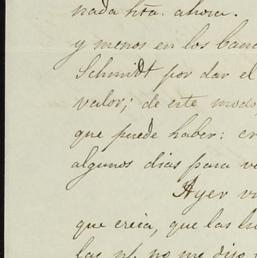 nada hta. ahora.
y menos en los ban
Schmidt por dar el
valor; de este modo
que puede haber: cr
algunos dias para v
Ayer v
que creia, que las lu
las pf. no me dijo